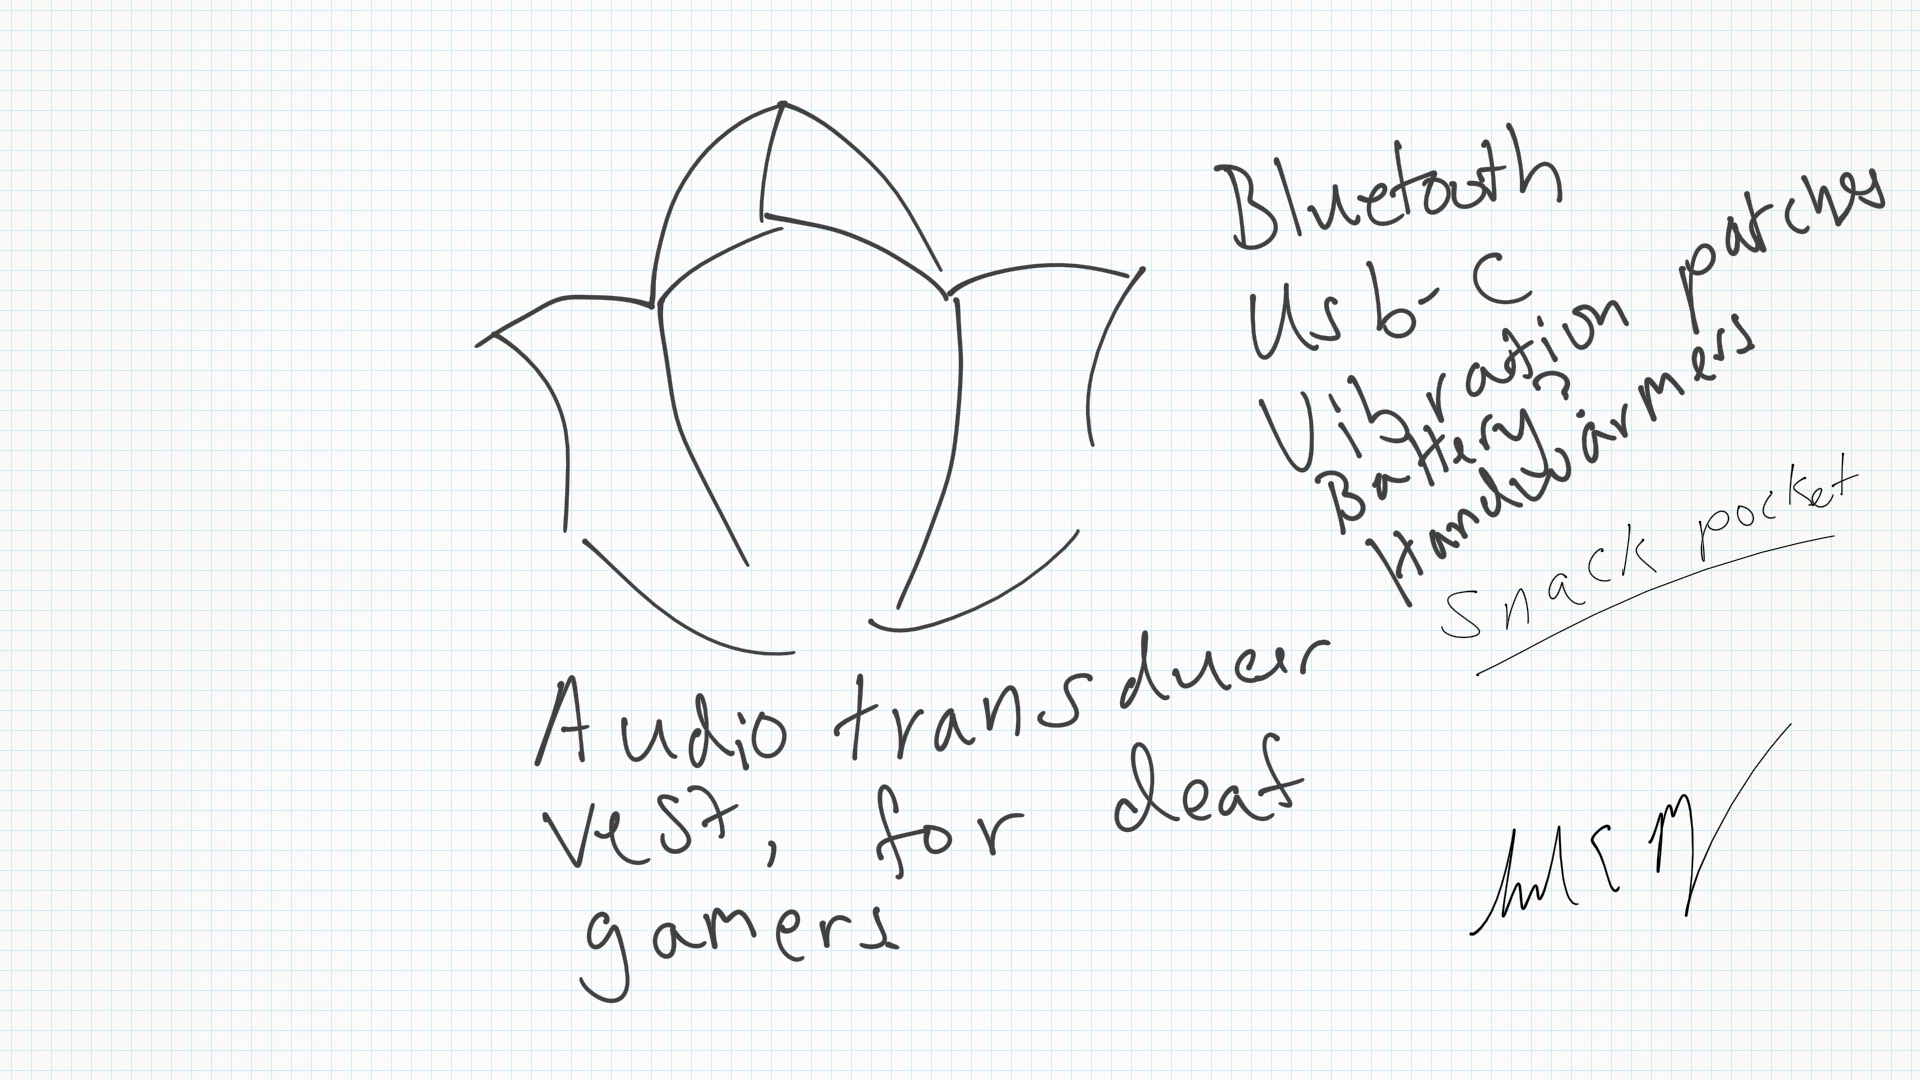 Bluetooth
Usb-C
Vibration patches
Battery?
Handwarmers
Snack pocket
Audio transducer
vest, for deaf
gamers